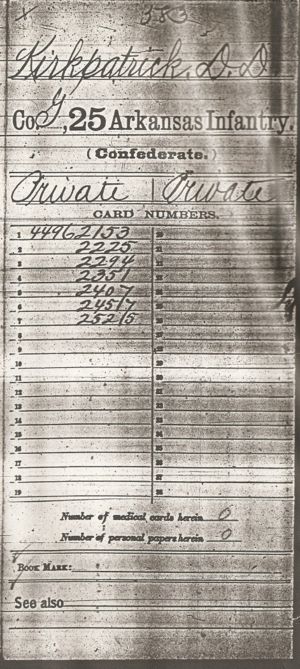 383
Kirkpatrick, D. D
Co. G, 25 Arkansas Infantry.
(Confederate.)
Private | Private
CARD NUMBERS.
1 44962153 20
2 2225 21
3 2294 22
4 2351 23
5 2407 24
6 2457 25
7 2525 26
8 27
9 28
10 29
11 30
12 31
13 32
14 33
15 34
16 35
17 36
18 37
19 38
Number of medical cards herein 0
Number of personal papers herein 0
BOOK MARK:
See also